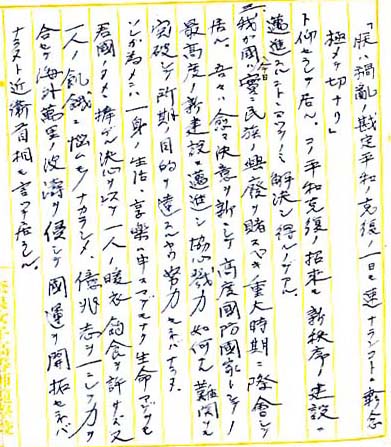 「朕ハ禍亂ノ戡定平和ノ克復ノ一日モ速ナランコトニ軫念
極メテ切ナリ」
ト仰セラレテ居ル。コノ平和克復ノ招来モ新秩序ノ建設ニ
邁進スルコトニヨツテノミ解決シ得ルノデアル
三、我が國ハ今日實ニ民族ノ興廢ヲ賭スベキ重大時期ニ際會シテ
居ル。吾々ハ愈々決意ヲ新ニシテ高度國防國家トシテノ
最高度ノ新建設ニ邁進シ協心戮力如何ナル難関モ
突破シテ所期ノ目的ヲ達スルヤウ努力セネバナラヌ
ソレガ為メニハ一身ノ生活、享楽ハ申スマデモナク生命アゲテモ
君國ノタメ捧グル決心ヲ以テ一人ノ暖衣飽食ヲ許サズ又
一人ノ飢餓ニ悩ムモノナカラシメ、億兆志ヲ一ニシテ力ヲ
合セテ海外萬里ノ波濤ヲ侵シテ國運ヲ開拓セネバ
ナラヌト近衛首相モ言ツテ居ラル。